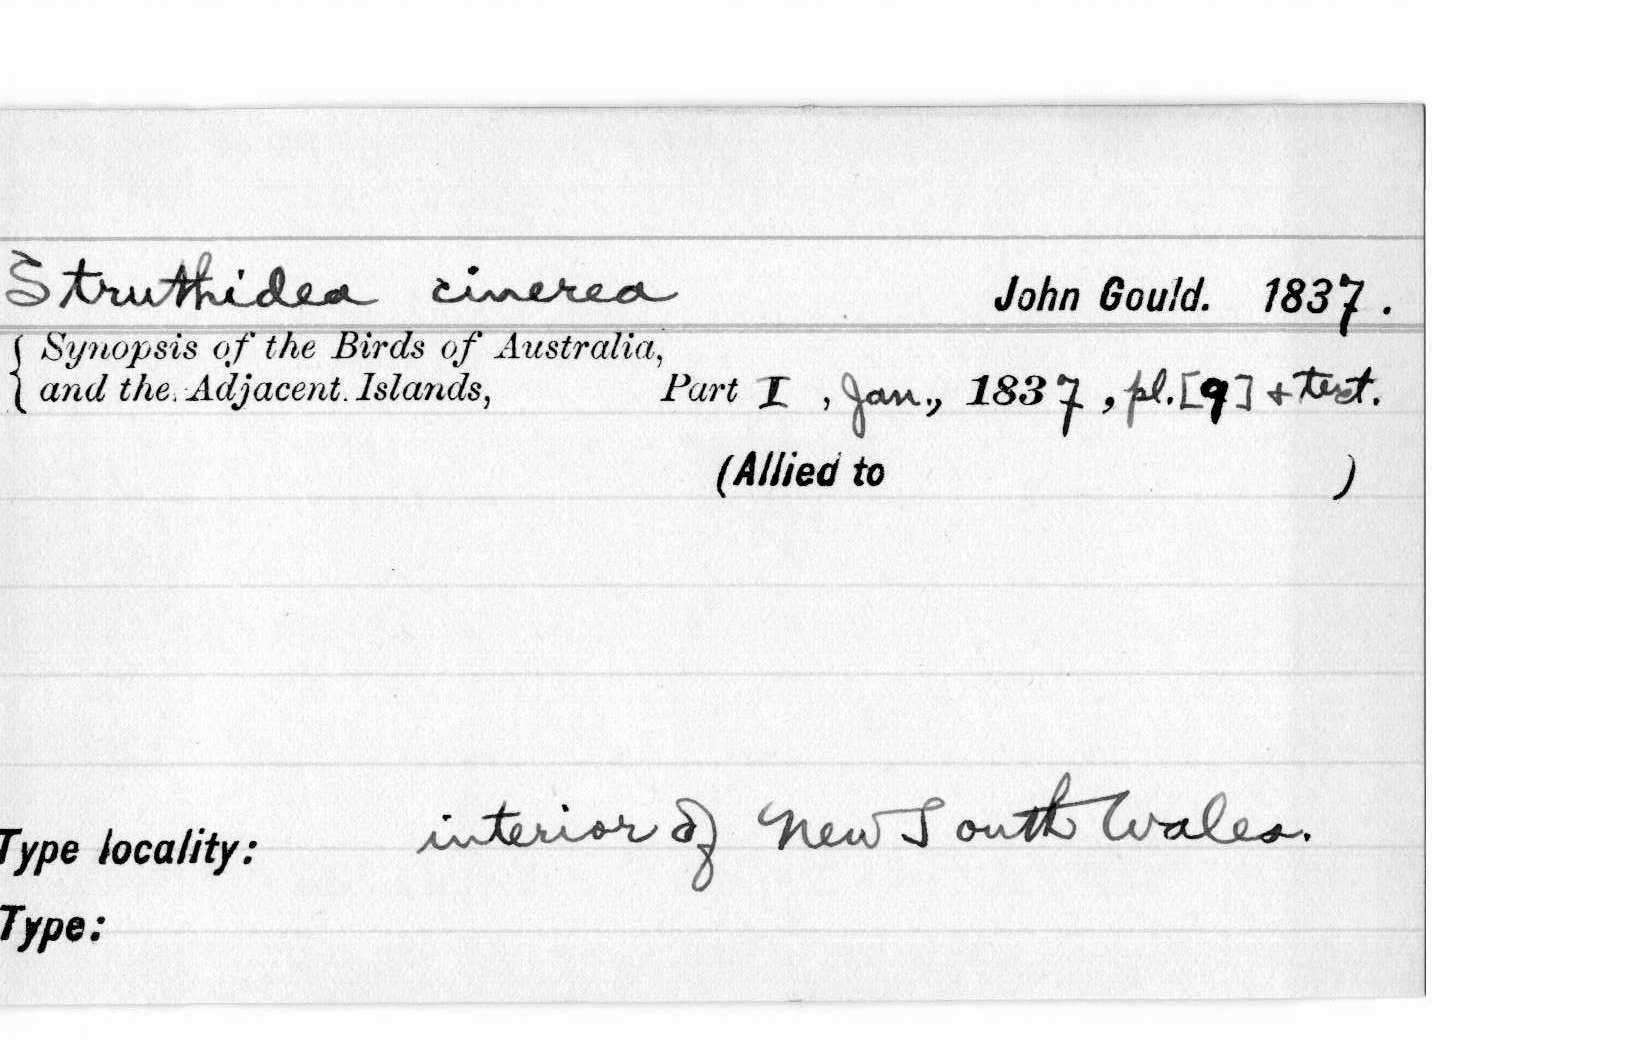 Struthidea cinerea John Gould. 1837.
Synopsis of the Birds of Australia,
and the Adjacent Islands, Part I, Jan., 1837, pl.[9] + text.
(Allied to )
Type locality: interior of New South Wales.
Type: